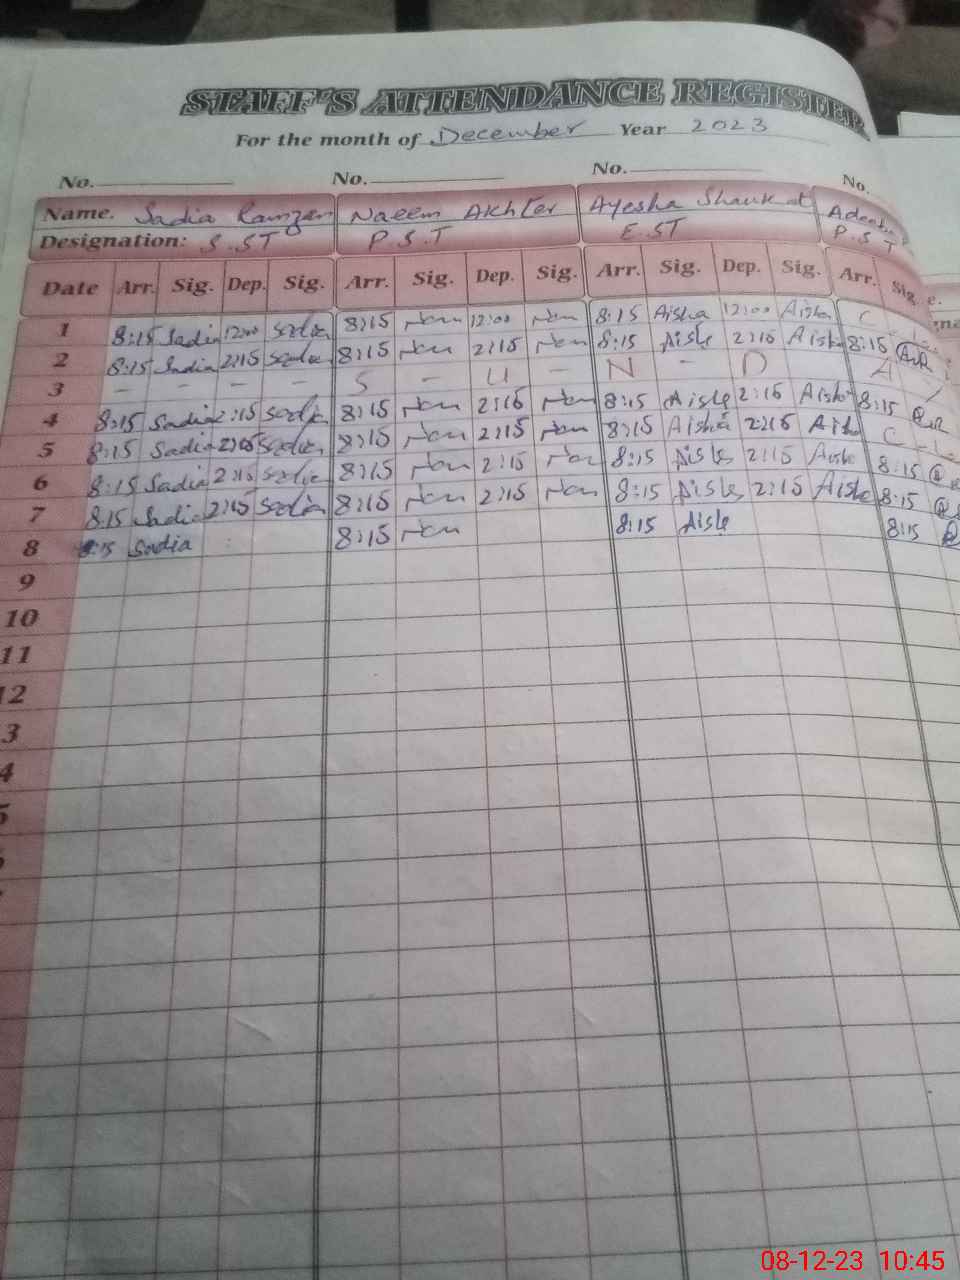 STAFF'S ATTENDANCE REGISTER
For the month of December Year 2023
No. No. No. No.
Name. Sadia Ramzan Naeem Akhter Ayesha Shaukat
Designation: S.ST P.S.T E.ST P.S.T
Date Arr. Sig. Dep. Sig. Arr. Sig. Dep. Sig. Arr. Sig. Dep. Sig. Arr. Sig.
1 8:15 Sadia 12:00 Sadia 8:15 12:00 8:15 Aisha 12:00 Aisha C
2 8:15 Sadia 2:15 Sadia 8:15 2:15 8:15 Aisha 2:15 Aisha 8:15
3 - - - - S - U - N - D A Y
4 8:15 Sadia 2:15 Sadia 8:15 2:15 8:15 Aisha 2:15 Aisha 8:15
5 8:15 Sadia 2:15 Sadia 8:15 2:15 8:15 Aisha 2:15 Aisha C - L
6 8:15 Sadia 2:15 Sadia 8:15 2:15 8:15 Aisha 2:15 Aisha 8:15
7 8:15 Sadia 2:15 Sadia 8:15 2:15 8:15 Aisha 2:15 Aisha 8:15
8 8:15 Sadia 8:15 8:15 Aisha 8:15
9
10
11
12
3
4
5
08-12-23 10:45